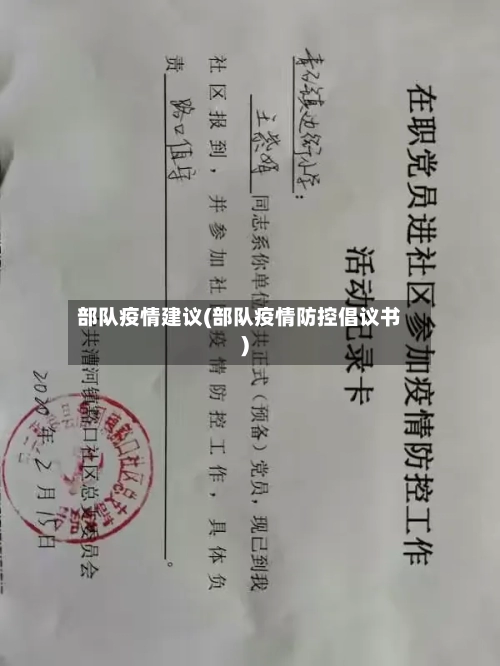 在职党员进社区参加疫情防控工作
活动记录卡
镇边街小学:
同志系你单位 共正式(预备)党员,现已到我
社区报到,并参加社 疫情防控工作,具体负
责 路口值守 。
共漕河镇 路口社区总支委员会
2020年2月15日
部队疫情建议(部队疫情防控倡议书
)